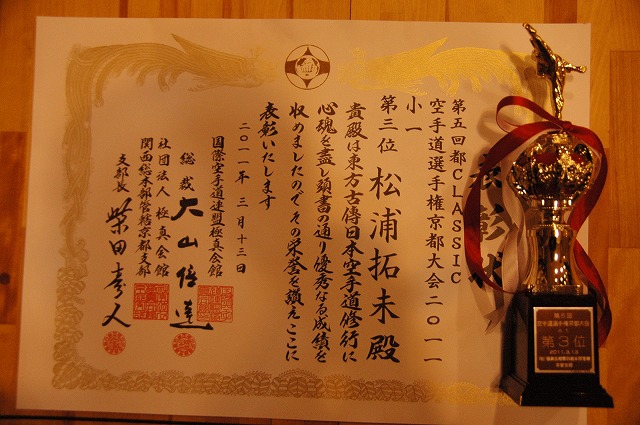 表彰状
第五回都CLASSIC
空手道選手権京都大会二〇一一
小一
第三位 松浦拓未殿
貴殿は東方古傳日本空手道修行に
心魂を盡し頭書の通り優秀なる成績を
収めましたのでその栄誉を讃えここに
表彰いたします
二〇一一年 三月十三日
国際空手道連盟極真会館
総裁 大山倍達
社団法人 極真会館
関西総本部管轄京都支部
支部長 柴田孝人
第5回
空手道選手権京都大会
第3位
2011.3.13